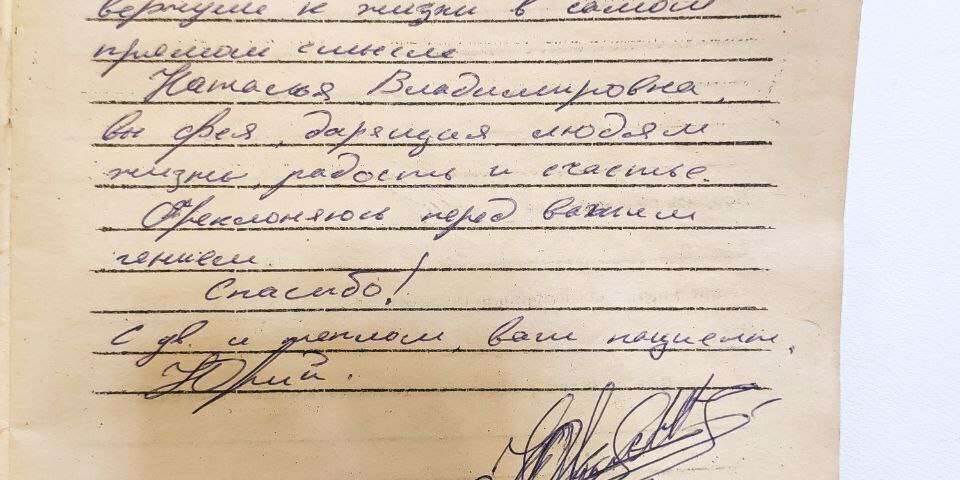 вернули к жизни в самом
прямом смысле
Наталья Владимировна,
вы фея, дарящая людям
жизнь, радость и счастье.
Преклоняюсь перед вашим
гением.
Спасибо!
С ув. и теплом, ваш пациент,
Юрий.